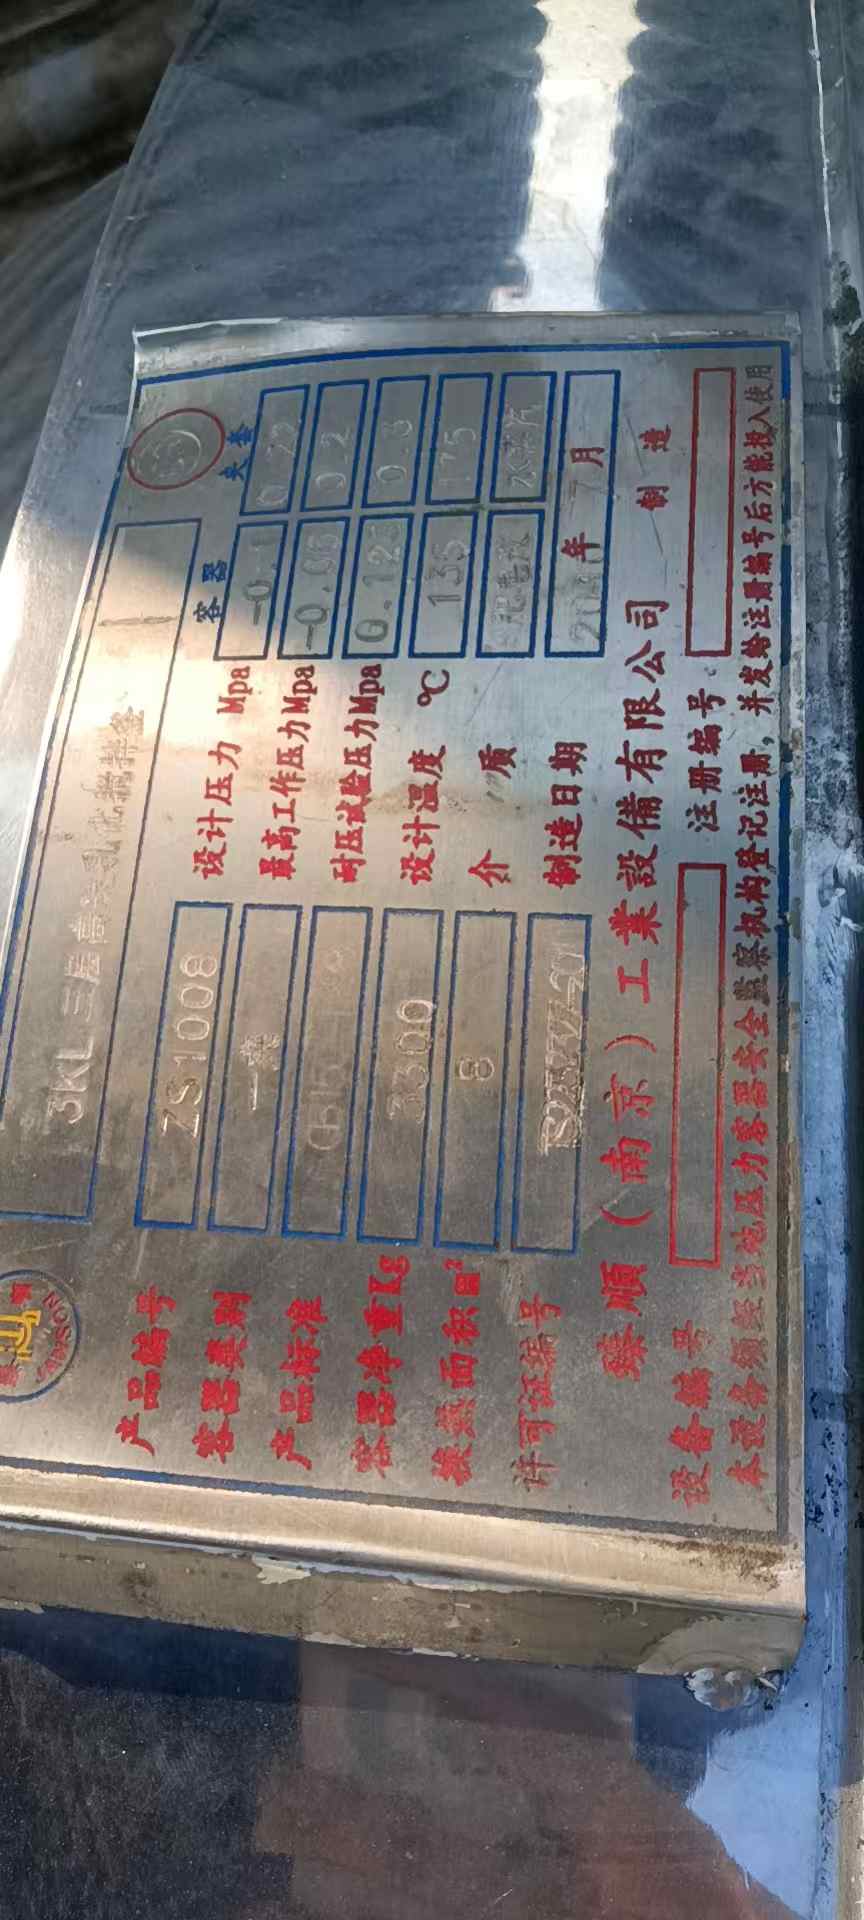 3KL三层高效乳化搅拌釜
容器 夹套
产品编号 ZS1008 设计压力 Mpa -0.1 0.22
容器类别 一类 最高工作压力Mpa -0.06 0.2
产品标准 耐压试验压力Mpa 0.125 0.3
容器净重Kg 3300 设计温度 ℃ 135 175
换热面积m² 8 介 质 水蒸汽
许可证编号 制造日期 年 7 月
臻順（南京）工業設備有限公司 制 造
设备编号 注册编号
本设备须经当地压力容器安全监察机构登记注册，并发给注册编号后方能投入使用